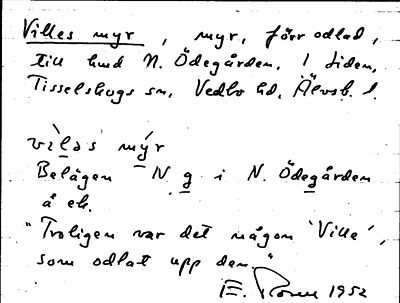 Villes myr, myr, förr odlad,
till hmd N. Ödegården, 1 Liden,
Tisselskogs sn, Vedbo hd, Älvsb. l.
vìla s mýr
Belägen N g i N. Ödegården
å ek.
"Troligen var det någon 'Ville',
som odlat upp den."
E. 1952